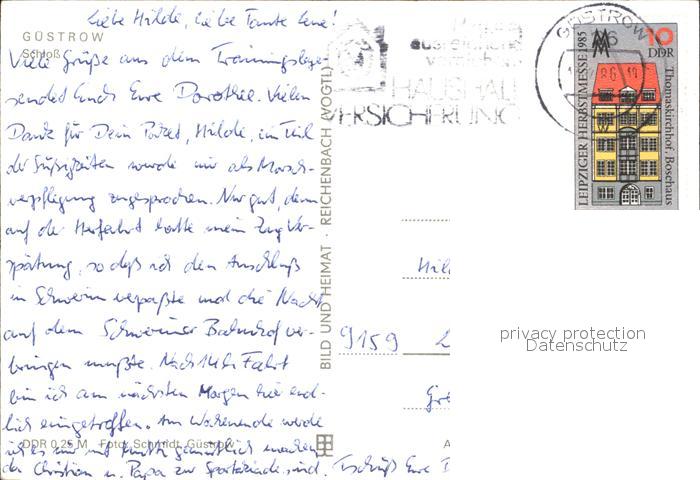 Liebe Hilde, liebe Tante Lene!
GÜSTROW
Schloß
Viele Grüße aus dem Trainingslager
sendet Euch Eure Dorothee. Vielen
Dank für Dein Paket, Hilde, ein Teil
der Süßigkeiten wurde mir als Marsch-
verpflegung zugesprochen. Nur gut, denn
auf der Herfahrt hatte mein Zug Ver-
spätung, so daß ich den Anschluß
in Schwerin verpaßte und die Nacht
auf dem Schweriner Bahnhof ver-
bringen mußte. Nach 14 h Fahrt
bin ich am nächsten Morgen hier end-
lich eingetroffen. Am Wochenende werde
ich es mir mit gemütlich machen
da Christian u. Papa zur Spartakiade sind. Tschüß Eure
DDR 0,25 M Foto: Schmidt, Güstrow
BILD UND HEIMAT · REICHENBACH (VOGTL)
HAUSHALT
VERSICHERUNG
GÜSTROW
10
DDR
LEIPZIGER HERBSTMESSE 1985
Thomaskirchhof, Bosehaus
Hil
9159
privacy protection
Datenschutz